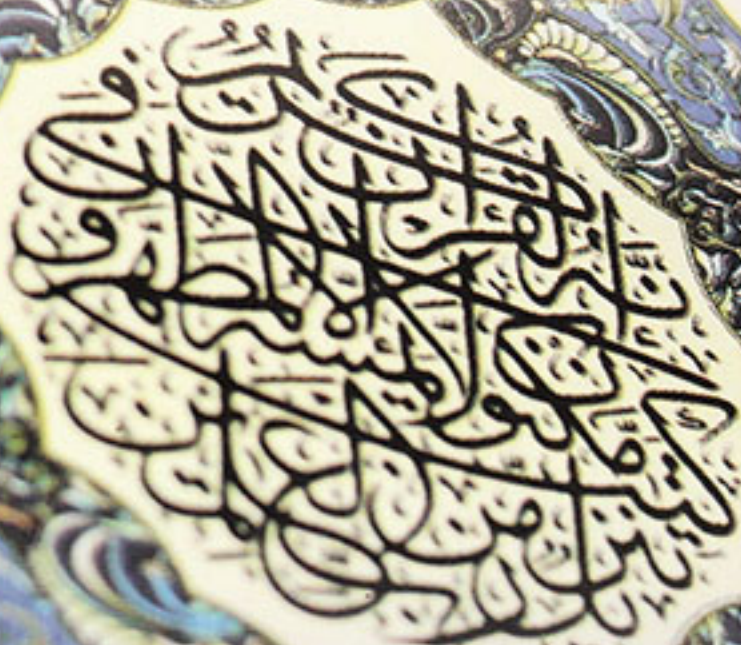 إنه لقرآن كريم
في كتاب مكنون
لا يمسه إلا المطهرون
تنزيل من رب العالمين